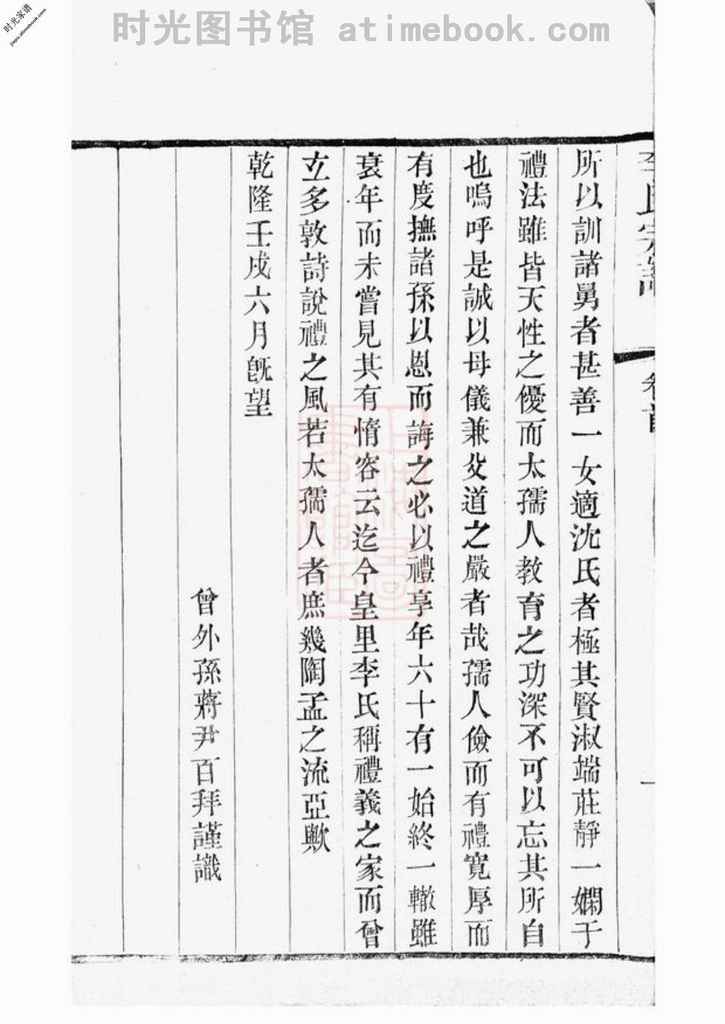 时光图书馆 atimebook.com
时光家谱
李氏宗譜 卷首 一
所以訓諸舅者甚善一女適沈氏者極其賢淑端莊靜一嫻于
禮法雖皆天性之優而太孺人教育之功深不可以忘其所自
也嗚呼是誠以母儀兼父道之嚴者哉孺人儉而有禮寬厚而
有度撫諸孫以恩而誨之必以禮享年六十有一始終一轍雖
衰年而未嘗見其有惰容云迄今皇里李氏稱禮義之家而曾
立多敦詩說禮之風若太孺人者庶幾陶孟之流亞歟
乾隆壬戌六月旣望
曾外孫蔣尹百拜謹識